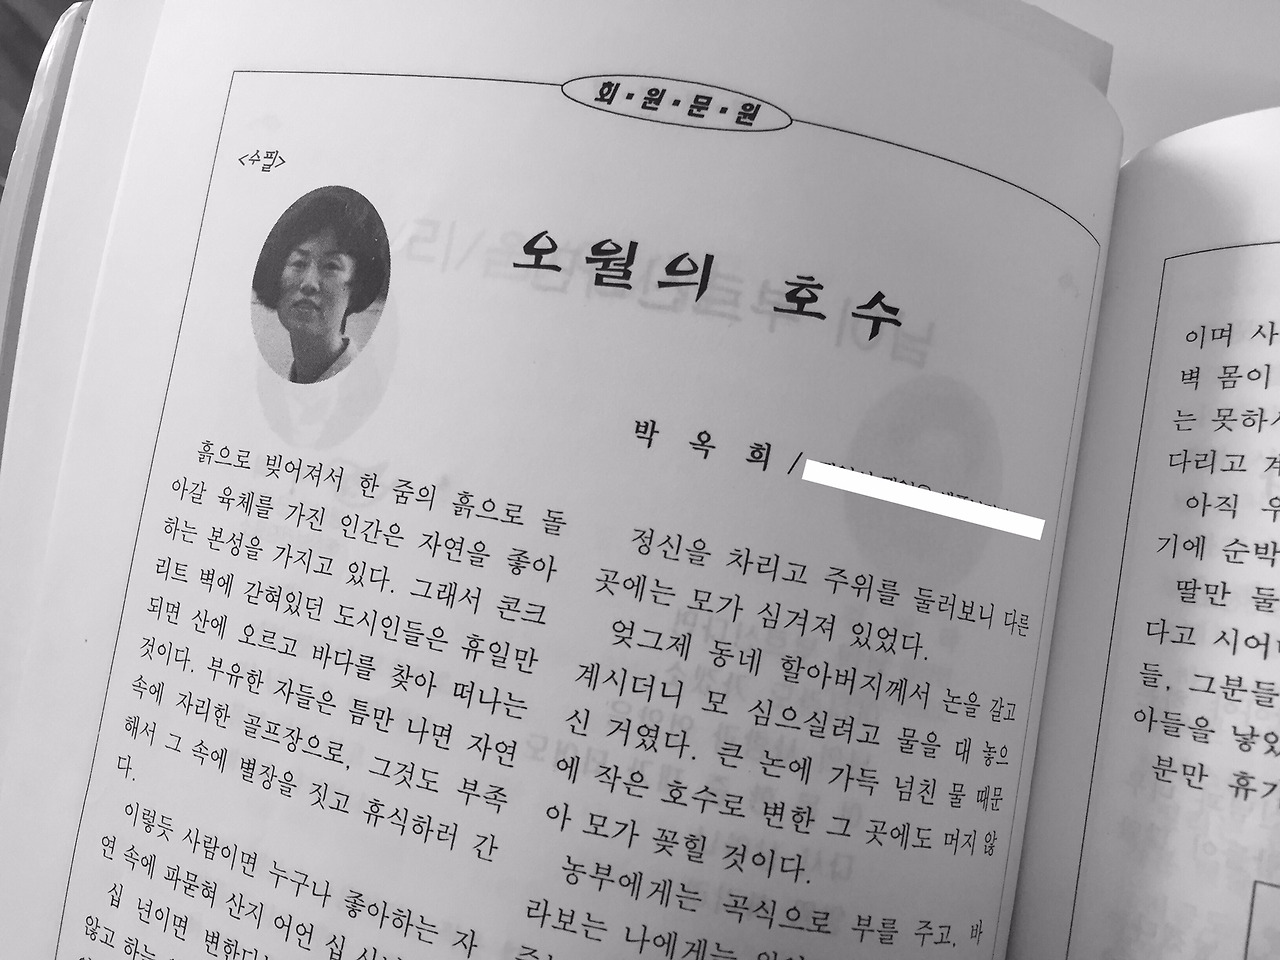 회·원·문·원
<수필>
오월의 호수
박 옥 희 /
흙으로 빚어져서 한 줌의 흙으로 돌
아갈 육체를 가진 인간은 자연을 좋아
하는 본성을 가지고 있다. 그래서 콘크
리트 벽에 갇혀있던 도시인들은 휴일만
되면 산에 오르고 바다를 찾아 떠나는
것이다. 부유한 자들은 틈만 나면 자연
속에 자리한 골프장으로, 그것도 부족
해서 그 속에 별장을 짓고 휴식하러 간
다.
이렇듯 사람이면 누구나 좋아하는 자
연 속에 파묻혀 산지 어언 십
십 년이면 변한다
않고 하는
정신을 차리고 주위를 둘러보니 다른
곳에는 모가 심겨져 있었다.
엊그제 동네 할아버지께서 논을 갈고
계시더니 모 심으실려고 물을 대 놓으
신 거였다. 큰 논에 가득 넘친 물 때문
에 작은 호수로 변한 그 곳에도 머지 않
아 모가 꽂힐 것이다.
농부에게는 곡식으로 부를 주고, 바
라보는 나에게는
이며 사
벽 몸이
는 못하
다리고
아직 우
기에 순박
딸만 둘
다고 시어
들, 그분들
아들을 낳았
분만 휴가